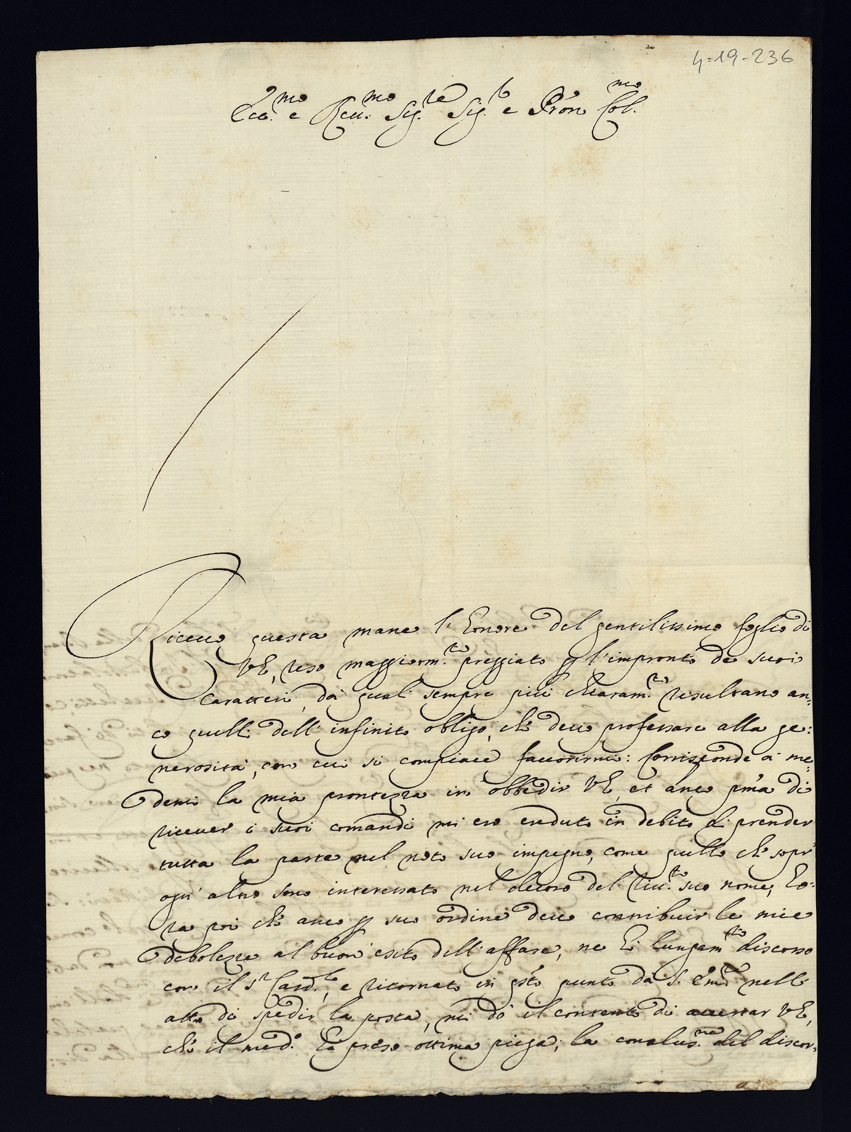 4-19-236
Ecc.mo e Rev.mo Sig.re Sig.r e Pron Col.mo
Ricevo questa mane l'honore del gentilissimo foglio di
VE, reso maggiorm.te preggiato p l'impronto de suoi
Caratteri, dai quali sempre più chiaram.te resultano an-
co quelli dell'infinito obligo, che devo professare alla ge:
nerosità, con cui si compiace favorirmi: Corrisponde a' me-
demi la mia prontezza in obbedir VE, et anco p.ma di
ricever i suoi comandi mi ero creduto in debito di prender
tutta la parte nel noto suo impegno, come quello che sopr'
ogn' altro sono interessato nel decoro del suo nome, ho-
ra poi che anco p suo ordine devo contribuir le mie
debolezze al buon esito dell'affare, ne hò lungam.te discorso
con il S.r Card.le, e ritornato in q.sto punto da S. Em.za nell'
atto di spedir la posta, mi dò il contento di accertar VE,
che il med.o ha preso ottima piega; la conclus.ne del discor-